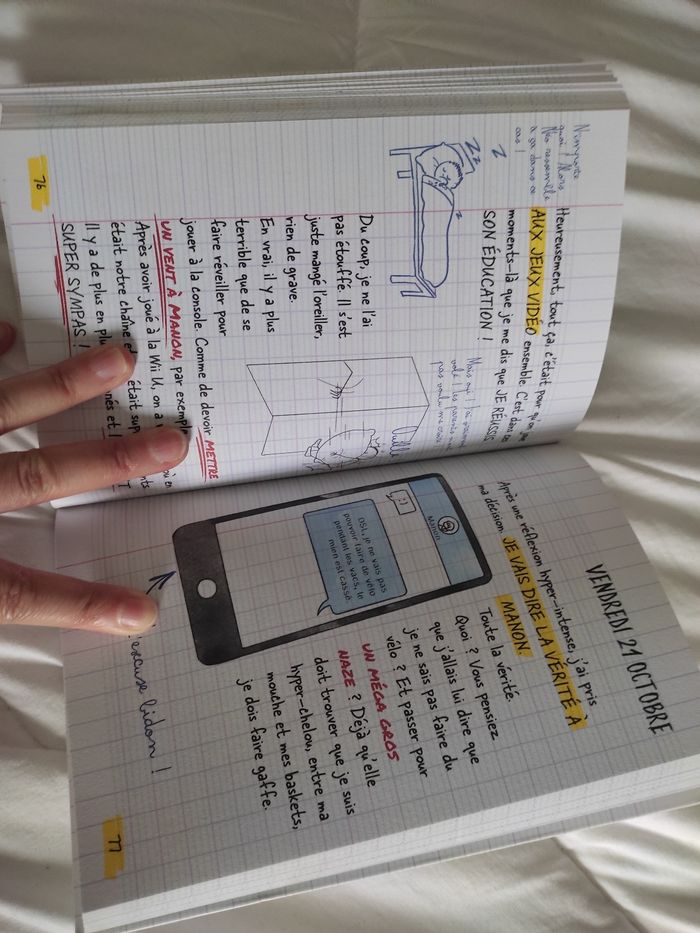 N'importe
quoi ! Alors
Néo ressemble
à ça dans ce
cas !
Heureusement, tout ça, c'était pour qu'on
AUX JEUX VIDÉO ensemble. C'est dans ces
moments-là que je me dis que JE RÉUSSIS
SON ÉDUCATION !
Z
ZZ
z
Mais oui ! J'ai
volé ! Les parents
pas voulu me croire
Du coup, je ne l'ai
pas étouffé. Il s'est
juste mangé l'oreiller,
rien de grave.
En vrai, il y a plus
terrible que de se
faire réveiller pour
jouer à la console. Comme de devoir METTRE
UN VENT À MANON, par exemple
Après avoir joué à la Wii U, on a
était notre chaîne et était
Il y a de plus en plus
SUPER SYMPAS !
76
VENDREDI 21 OCTOBRE
Après une réflexion hyper-intense, j'ai pris
ma décision. JE VAIS DIRE LA VÉRITÉ À
MANON.
Manon
:)
DSL, je ne vais pas
pouvoir faire de vélo
pendant les vacs, le
mien est cassé.
Toute la vérité.
Quoi ? Vous pensiez
que j'allais lui dire que
je ne sais pas faire du
vélo ? Et passer pour
UN MÉGA GROS
NAZE ? Déjà qu'elle
doit trouver que je suis
hyper-chelou, entre ma
mouche et mes baskets,
je dois faire gaffe.
l'excuse bidon !
77